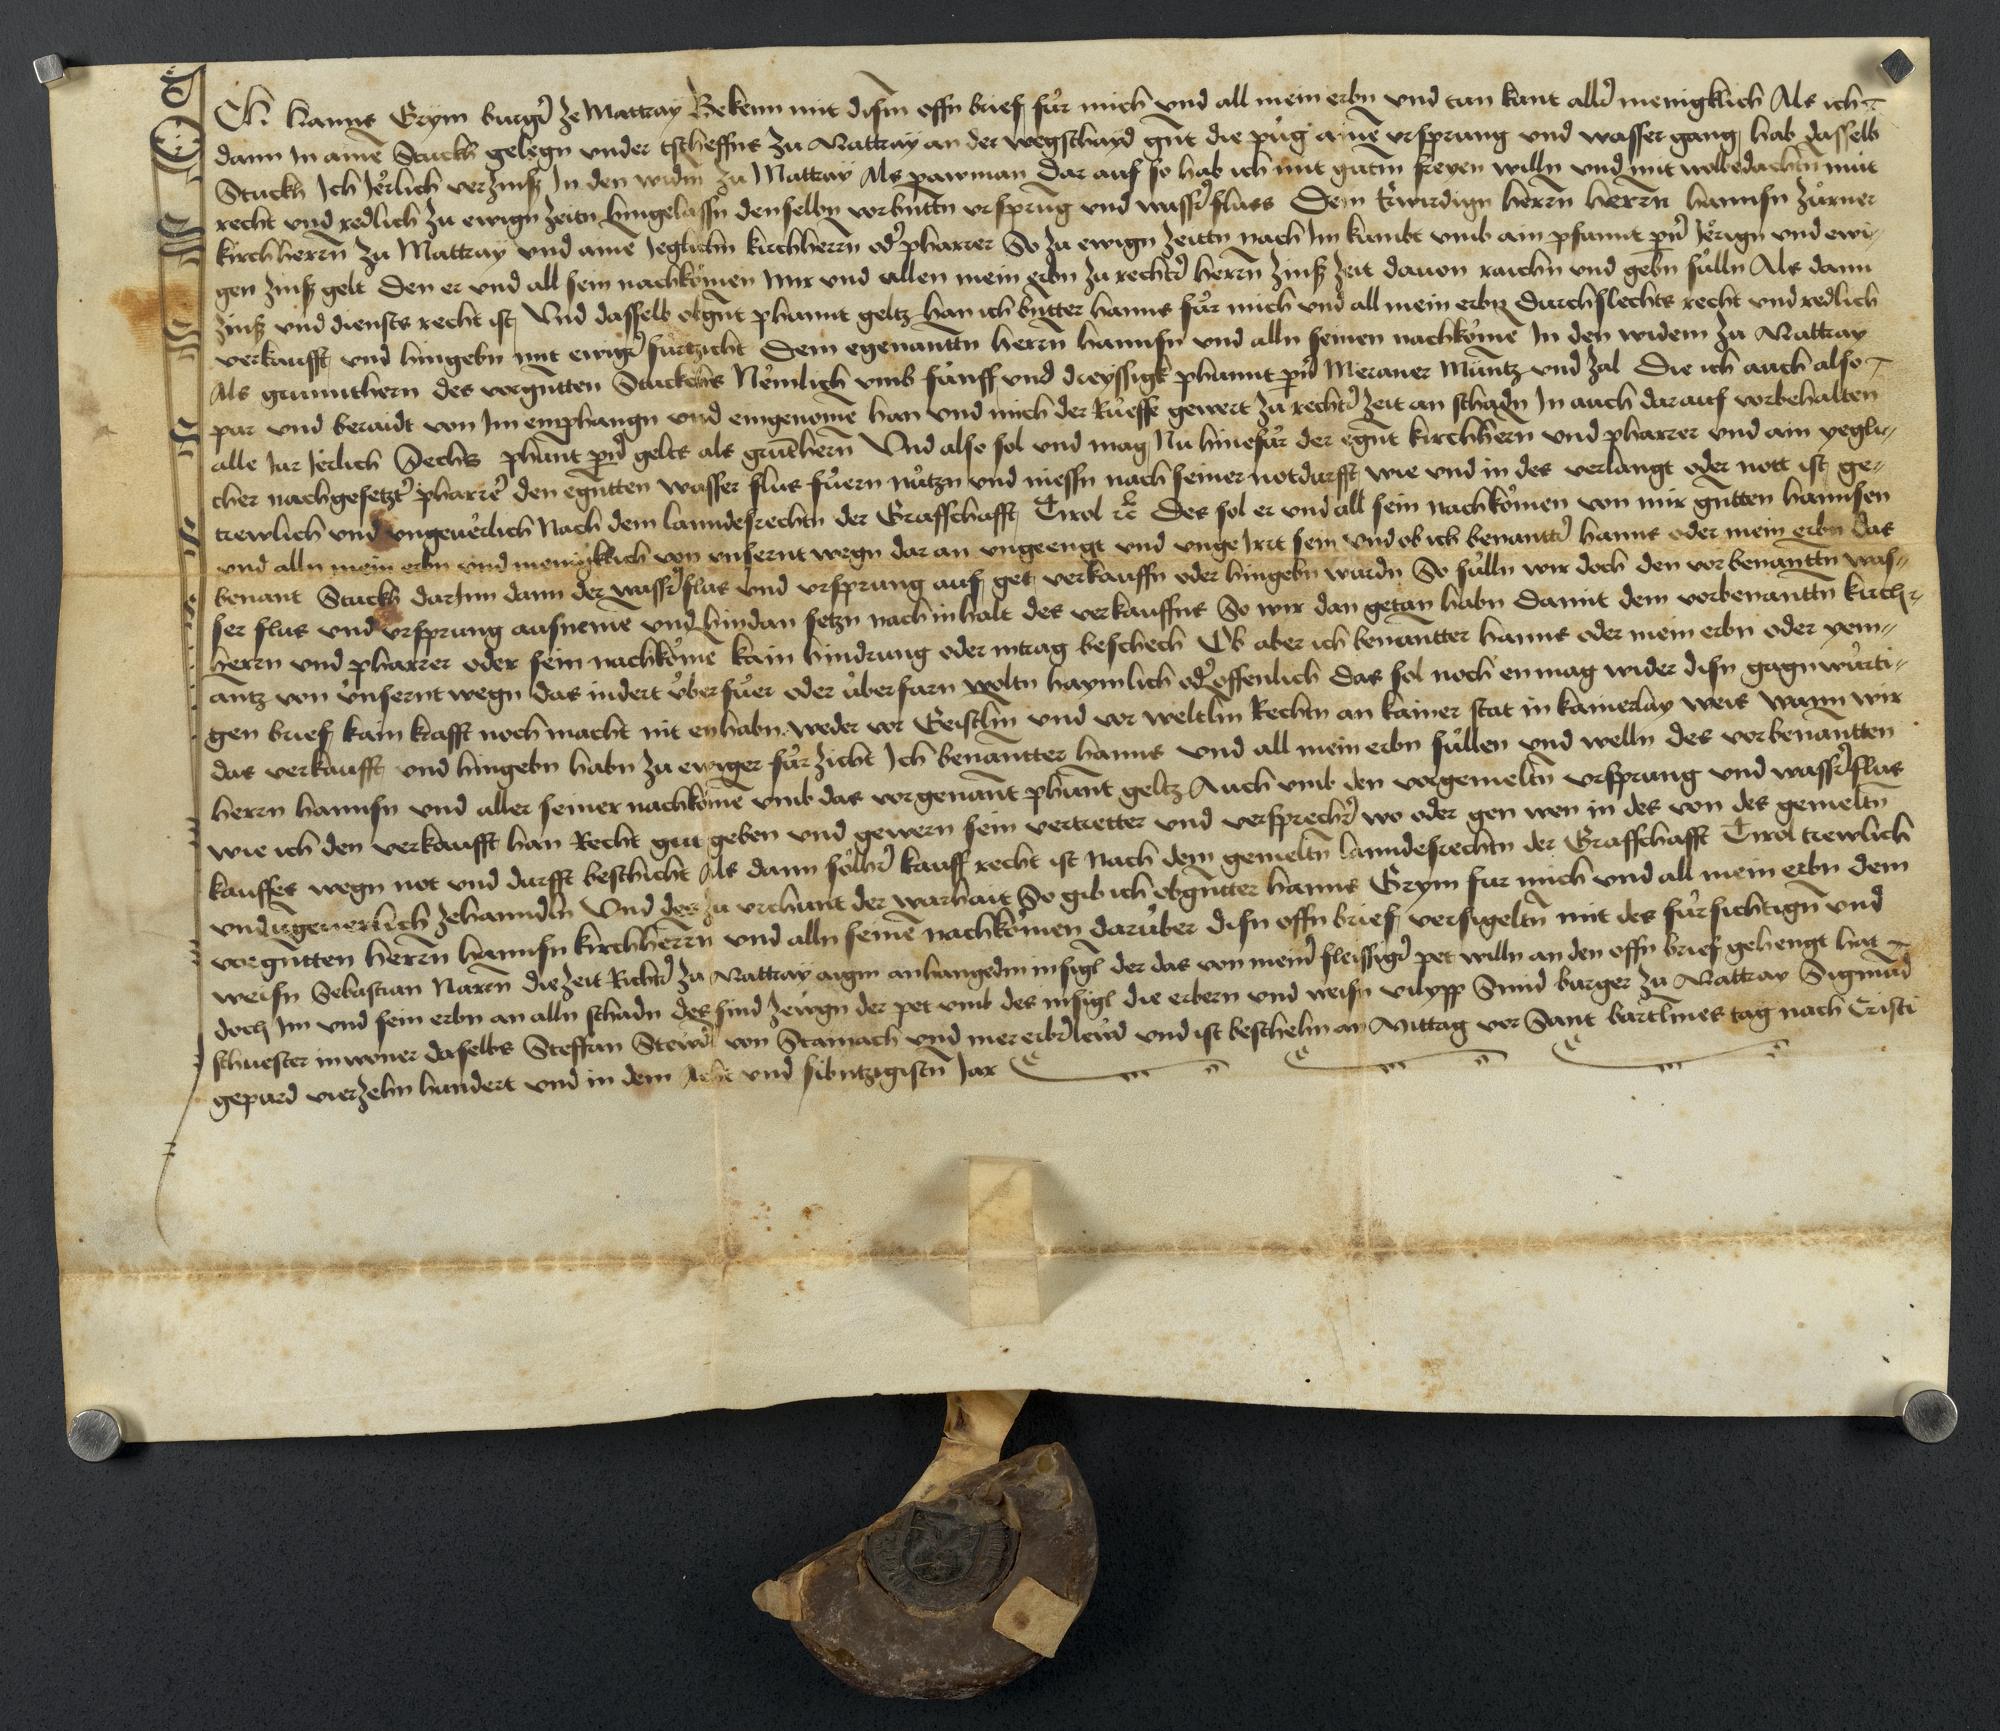 Ich Hanns Grym burg̃ ze Mattray Bekenn mit dism offn brief für mich vnd all mein erbn vnd tun kunt allr̃ menigklich Als ich
dann In aine Stuckh gelegn vnder tscheffns zu Mattray an der wegschayd gn̄t die pu᷑g aine vrsprung vnd wasser gang hab dasselb
Stuckh Ich Jerlich verzinß In den widm zu Mattray Als pawman Dar auf so hab ich mit gutm freyen willn vnd mit wolbedachtn mut
recht vnd redlich zu ewign zeitn hingelassn denselbn vorbn̄ttn vrsprūg vnd wassr̃fluss Dem Erwirdign herrn herrn hannsn Zürner
kirchherrn zu Mattray vnd aine Jeglichn kirchherrn odr̃ pharrer So zu ewign zeittn nach Im kumbt vmb ain pfunnt pn̄r Jerign vnd ewi-
gen zinß gelt Den er vnd all sein nachkömen mir vnd allen mein erbn zu rechtr̃ herrn zinß zeit dauon raichn vnd gebn sülln Als dann
zinß vnd diensts recht ist Vnd dasselb obgn̄t phunnt geltz han ich bn̄tter hanns für mich vnd all mein erbn durchslechts recht vnd redlich
verkaufft vnd hingebn mit ewigr̃ fürtzicht Dem egenanttn herrn hannsn vnd alln seinen nachköme In den widem zu Mattray
Als grunnthern des vorgn̄tten Stuckchs Nemlich vmb fünff vnd dreyssigk phunnt pn̄r Meraner Müntz vnd zal Die ich auch also
par vnd beraidt von Im emphangn vnd eingenome han vnd mich der Ruesse gewert zu rechtr̃ zeit an schadn In auch darauf vorbehalten
alle Jar Jerlich Sechs phunt pn̄r gelts als grūthern Vnd also sol vnd mag Nu hinefür der egn̄t kirchhern vnd pharrer vnd ain yegli-
cher nachgesetztr̃ pharrer̃ den egn̄tten wasser flus füern nützn vnd niessn nach seiner notdurfft wie vnd in des verlangt oder nott ist ge-
trewlich vnd vngeuerlich Nach dem lanndesrechtn der Graffschafft Tirol ꝛc̃ Des sol er vnd all sein nachkömen von mir gn̄tten hannsen
vnd alln mein erbn vnd menigklich von vnsernt wegn dar an vngeengt vnd vnge Irrt sein vnd ob ich benanttr̃ hanns oder mein erbn das
benant Stuckh darInn dann der wassr̃flus vnd vrsprung auf get verkauffn oder hingebn wurdn So sülln wir doch den vorbenanttn was-
ser flus vnd vrsprung ausneme vnd hindan setzn nach inhalt des verkauffns So wir dan getan habn Damit dem vorbenanttn kirch-
herrn vnd pharrer oder sein nachköme kain hindrung oder intrag beschech Ob aber ich benantter hanns oder mein erbn oder yem-
antz von vnsernt wegn das indert überfüer oder überfarn woltn haymlich odr̃ offenlich Das sol noch enmag wider disn gagnwürti-
gen brief kain krafft noch macht nit enhabn weder vor Geistlin vnd vor weltlin Rechtn an kainer stat in kainerlay weis wann wir
das verkaufft vnd hingebn habn zu ewiger fürzicht Ich benantter hanns vnd all mein erbn süllen vnd welln des vorbenantten
herrn hannsn vnd aller seiner nachköme vmb das vorgenant phunt geltz Auch vmb den vorgemeltn vrsprung vnd wassr̃flus
wie ich den verkaufft han Recht gut geben vnd gewern sein vertretter vnd versprechr̃ wo oder gen wen in des von des gemeltn
kauffes wegn not vnd durfft beschicht Als dann sölhr̃ kauff recht ist Nach dem gemeltn lanndesrechtn der Graffschafft Tirol trewlich
vnd vngeuerlich zehanndln Vnd des zu vrchunt der warhait So gib ich obgn̄tter hanns Grym fur mich vnd all mein erbn dem
vorgn̄tten herrn hannsn kirchherrn vnd alln seine nachkömen darüber disn offn brief versigeltn mit des fürsichtign vnd
weisn Sebastian Narrn die zeit Richtr̃ zu Mattray aigm anhangedm insigl der das von meinr̃ fleissigr̃ pet willn an den offn brief gehengt hat
doch Im vnd sein erbn an alln schadn des sind zewgn der pet vmb des insigl die erbern vnd weisn Vilypp Smid burger zu Mattray Sigmūd
schuester inwoner daselbs Steffan von Stainach vnd mer erbr̃ lewd vnd ist beschehn an Mittag vor Sant bartlmes tag nach Cristi
gepurd vierzehn hundert vnd in dem Acht vnd sibntzigistn Jar